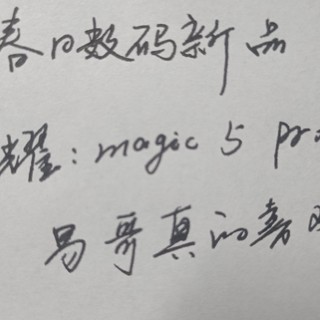 春日数码新品
耀：magic 5 pr
易哥真的喜